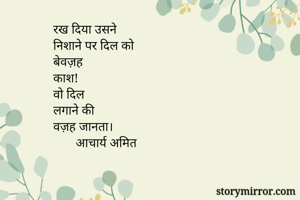 रख दिया उसने
निशाने पर दिल को
बेवज़ह
काश!
वो दिल
लगाने की
वज़ह जानता।
आचार्य अमित
storymirror.com